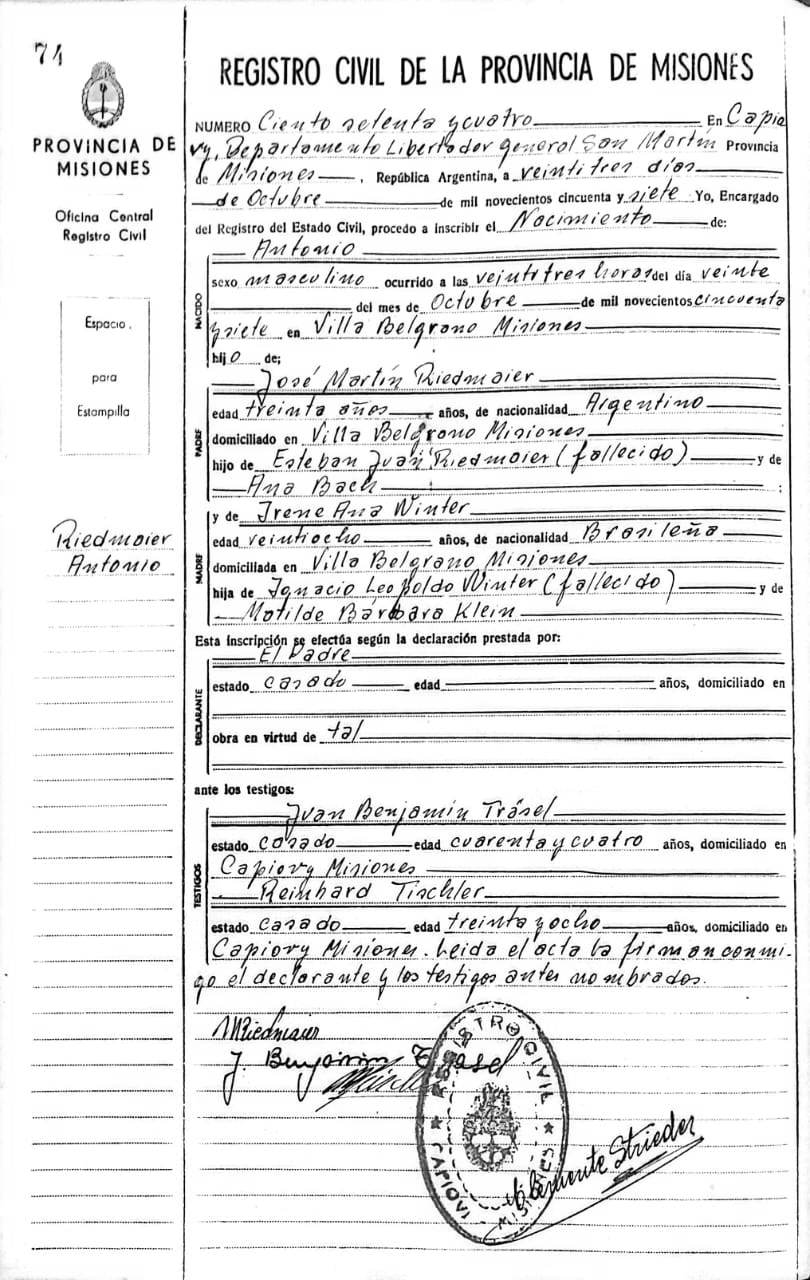 74
PROVINCIA DE
MISIONES
Oficina Central
Registro Civil
Espacio
para
Estampilla
Riedmaier
Antonio
REGISTRO CIVIL DE LA PROVINCIA DE MISIONES
NUMERO Ciento setenta y cuatro En Capio
vy, Departamento Libertador general San Martín Provincia
de Misiones, República Argentina, a veintitres días
de Octubre de mil novecientos cincuenta y siete Yo, Encargado
del Registro del Estado Civil, procedo a inscribir el Nacimiento de:
Antonio
NACIDO
sexo masculino ocurrido a las veintitres horas del día veinte
del mes de Octubre de mil novecientos cincuenta
y siete en Villa Belgrano Misiones
hijo de;
José Martín Riedmaier
PADRE
edad treinta años años, de nacionalidad Argentino
domiciliado en Villa Belgrano Misiones
hijo de Esteban Juan Riedmaier (fallecido) y de
Ana Bach ;
MADRE
y de Irene Ana Winter
edad veintiocho años, de nacionalidad Brasileña
domiciliada en Villa Belgrano Misiones
hija de Ignacio Leopoldo Winter (fallecido) y de
Matilde Bárbara Klein
Esta inscripción se efectúa según la declaración prestada por:
El Padre
DECLARANTE
estado casado edad años, domiciliado en
obra en virtud de tal
ante los testigos:
Juan Benjamín Träsel
TESTIGOS
estado casado edad cuarenta y cuatro años, domiciliado en
Capiovy Misiones
Reinhard Tischler
estado casado edad treinta y ocho años, domiciliado en
Capiovy Misiones. Leida el acta la firman conmi-
go el declarante y los testigos antes nombrados.
MRiedmaier
J. Benjamin Träsel
REGISTRO CIVIL
CAPIOVI
MISIONES
Clemente Strieder